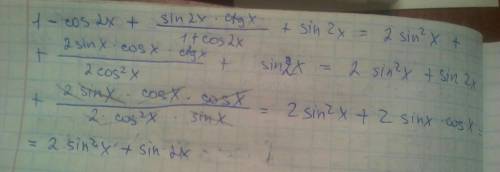 1 - cos 2x + (sin 2x · ctgx)/(1 + cos 2x) + sin 2x = 2 sin²x +
+ (2 sinx · cosx · ctgx)/(2 cos²x) + sin2x = 2 sin²x + sin 2x
+ (2 sinx · cosx · cosx)/(2 · cos²x · sinx) = 2 sin²x + 2 sinx · cosx =
= 2 sin²x + sin 2x